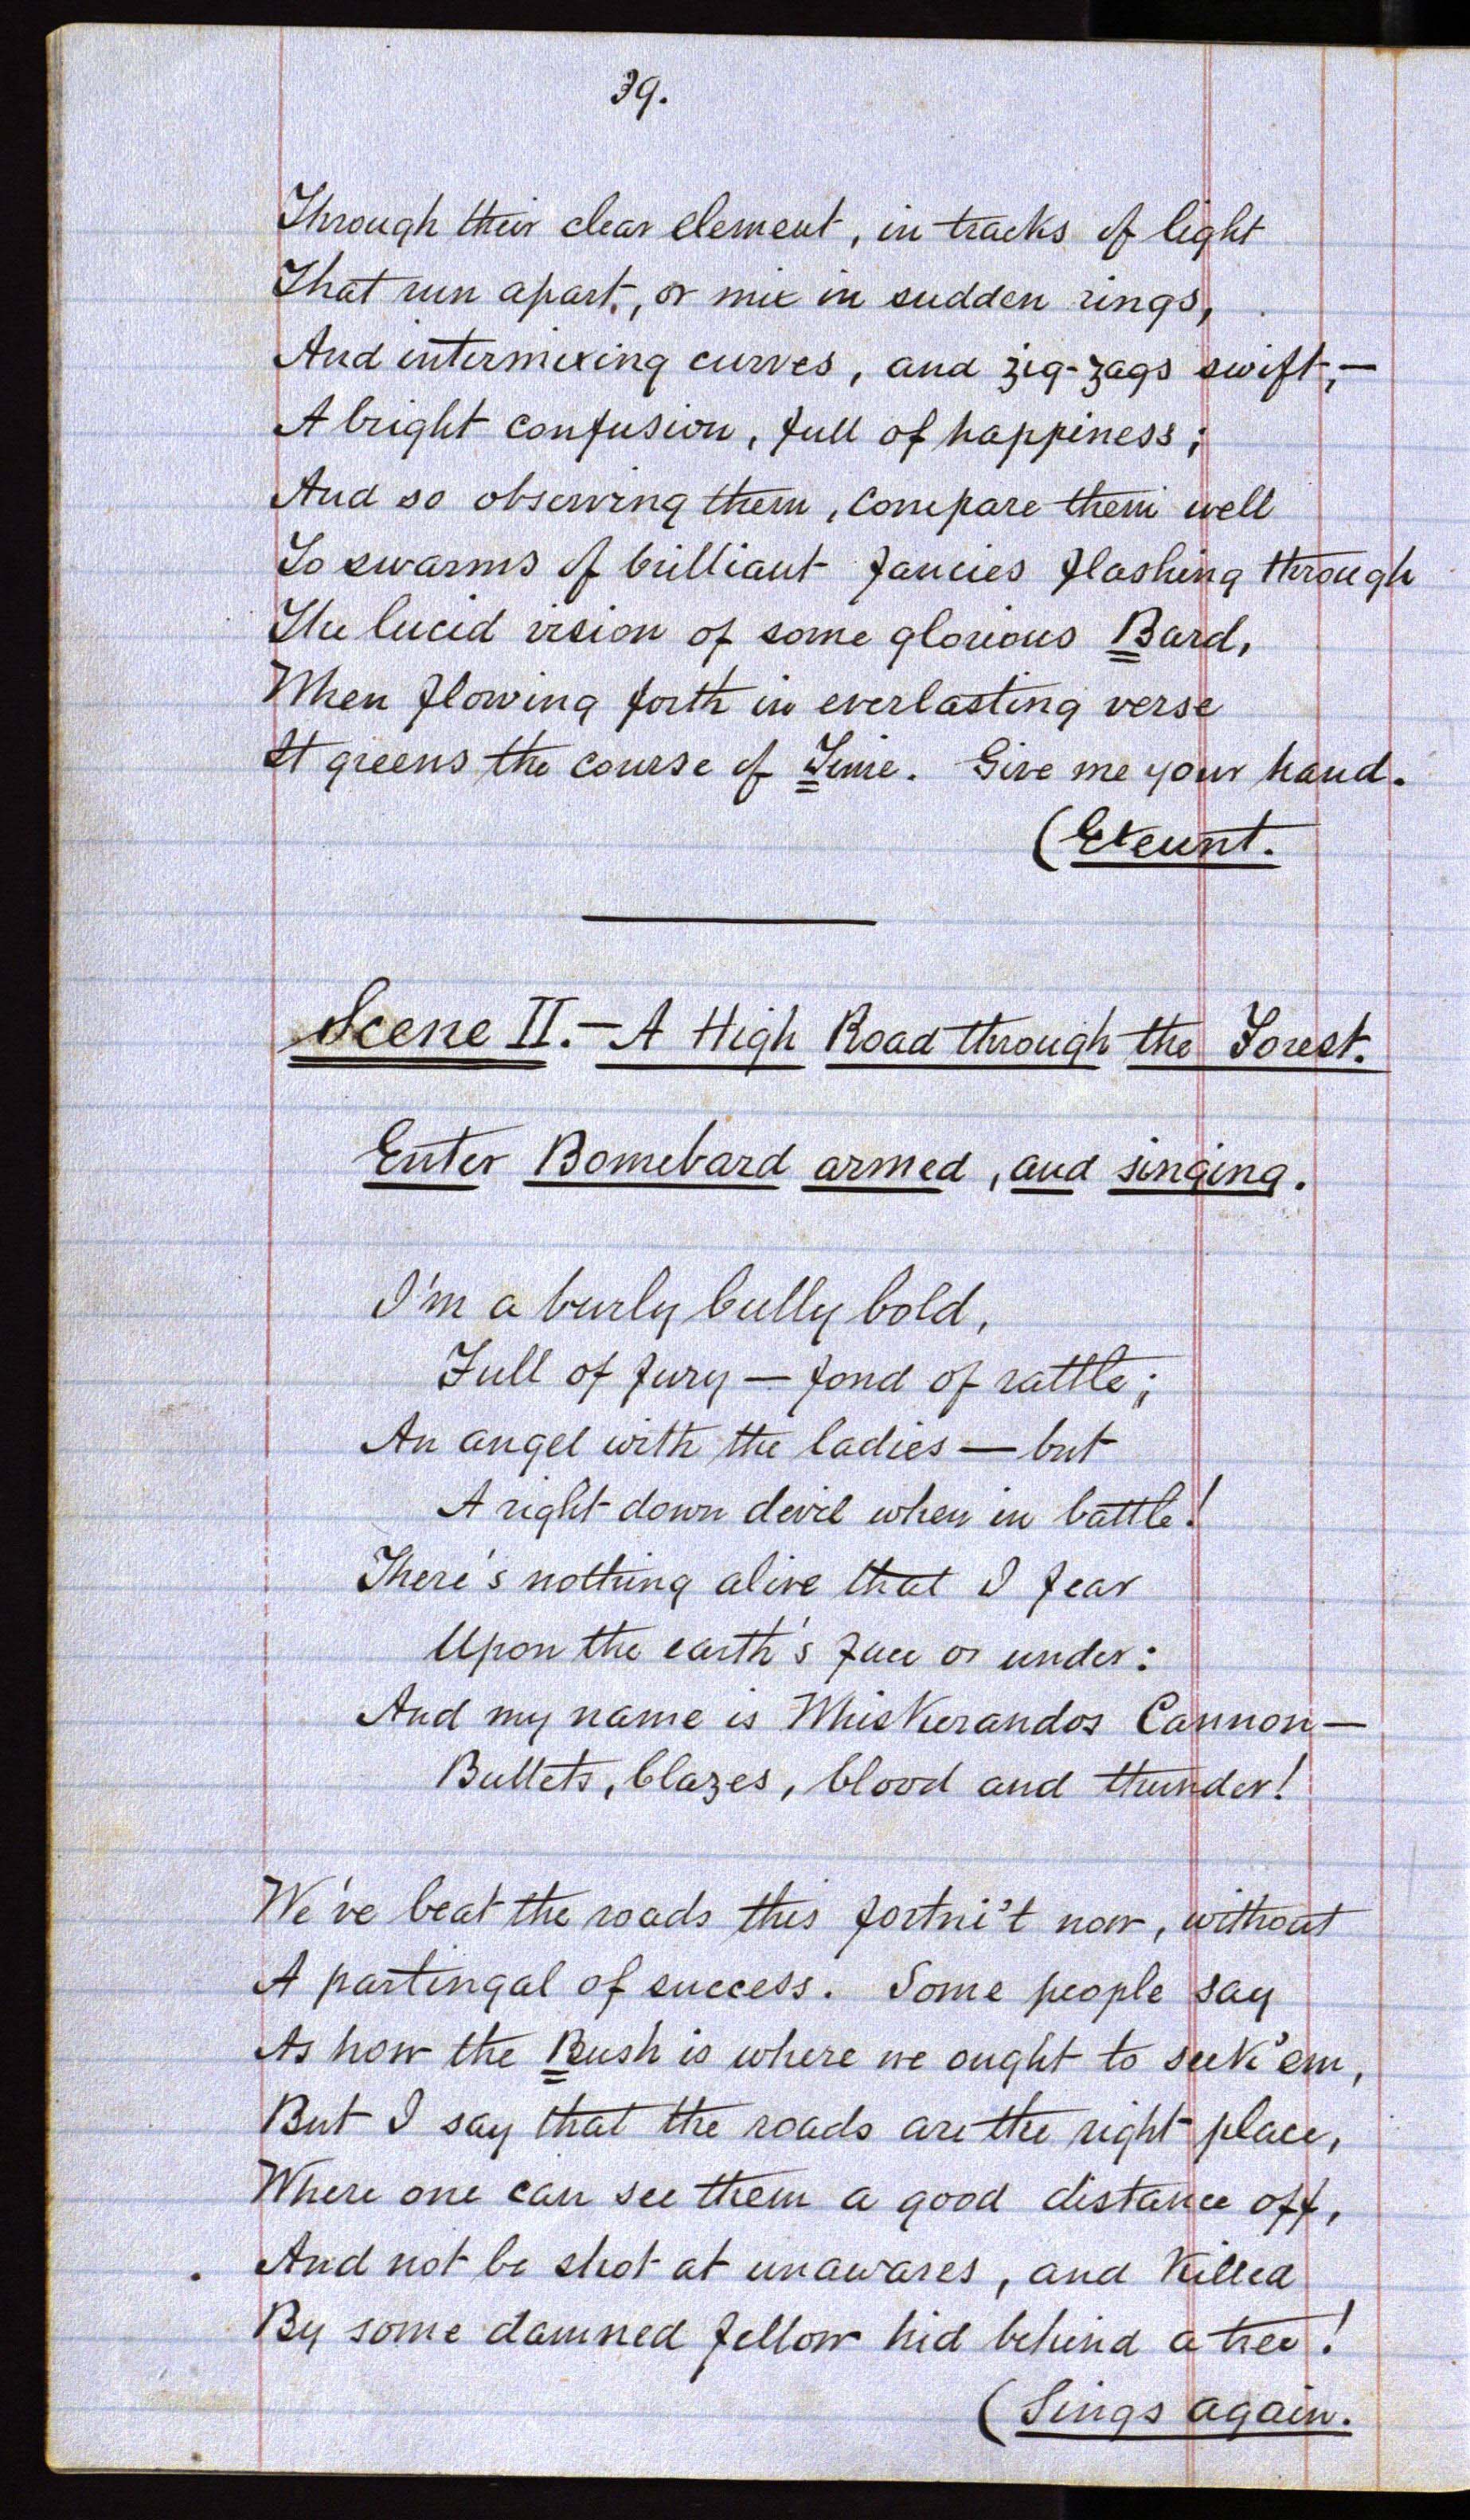 39.
Through their clear element, in tracks of light
That run apart, or mix in sudden rings,
And intermixing curves, and zig-zags swift,—
A bright confusion, full of happiness;
And so observing them, compare them well
To swarms of brilliant fancies flashing through
The lucid vision of some glorious Bard,
When flowing forth in everlasting verse
It greens the course of Time. Give me your hand.
(Exeunt.
Scene II.—A High Road through the Forest.
Enter Bomebard armed, and singing.
I'm a burly bully bold,
Full of fury — fond of rattle;
An angel with the ladies — but
A right down devil when in battle!
There's nothing alive that I fear
Upon the earth's face or under:
And my name is Whiskerandos Cannon—
Bullets, blazes, blood and thunder!
We've beat the roads this fortni't now, without
A partingal of success. Some people say
As how the Bush is where we ought to seek 'em,
But I say that the roads are the right place,
Where one can see them a good distance off,
And not be shot at unawares, and killed
By some damned fellow hid behind a tree!
(Sings again.